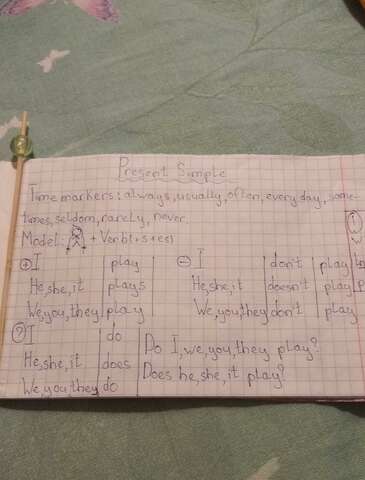 Present Simple
Time markers: always, usually, often, every day, some-
times, seldom, rarely, never.
Model: + Verb(+s+es)
+ I play
He, she, it plays
We, you, they play
- I don't play
He, she, it doesn't play
We, you, they don't play
? I do
He, she, it does
We, you, they do
Do I, we, you, they play?
Does he, she, it play?